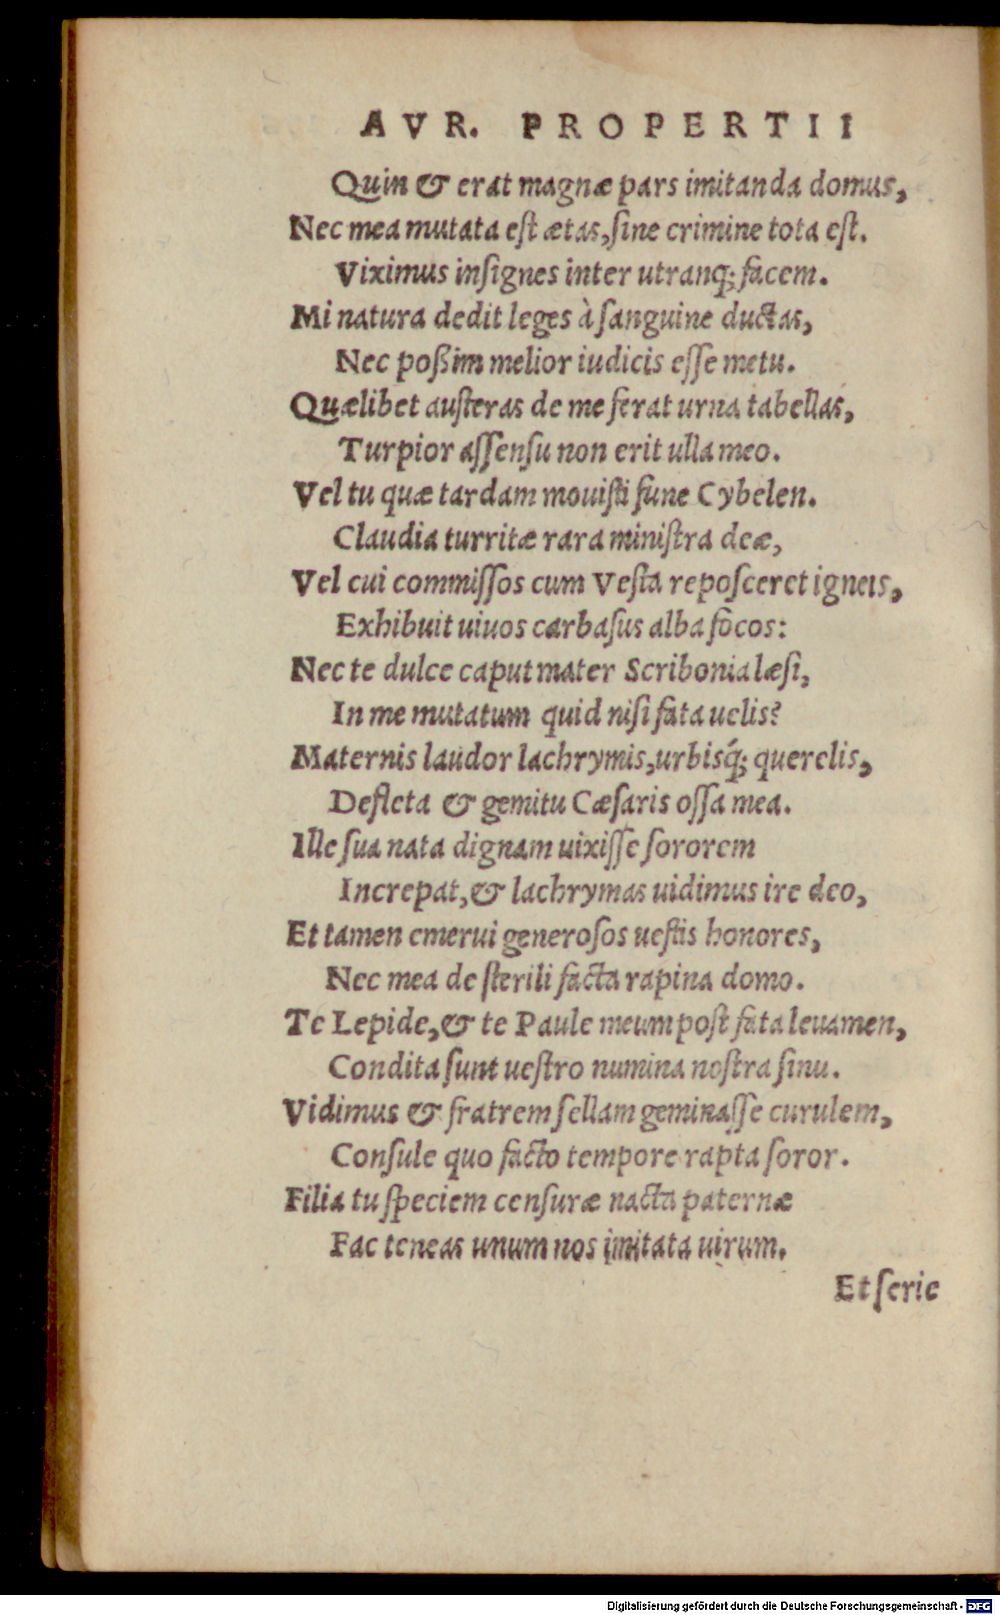 AVR. PROPERTII
Quin & erat magnæ pars imitanda domus,
Nec mea mutata eſt ætas, ſine crimine tota eſt.
Viximus inſignes inter utranq; facem.
Mi natura dedit leges à ſanguine ductas,
Nec poßim melior iudicis eſſe metu.
Quælibet auſteras de me ferat urna tabellas,
Turpior aſſenſu non erit ulla meo.
Vel tu quæ tardam mouiſti fune Cybelen.
Claudia turritæ rara miniſtra deæ,
Vel cui commiſſos cum Veſta repoſceret igneis,
Exhibuit uiuos carbaſus alba focos:
Nec te dulce caput mater Scribonia læſi,
In me mutatum quid niſi fata uelis?
Maternis laudor lachrymis, urbisq́; querelis,
Defleta & gemitu Cæſaris oſſa mea.
Ille ſua nata dignam uixiſſe ſororem
Increpat, & lachrymas uidimus ire deo,
Et tamen emerui generoſos ueſtis honores,
Nec mea de ſterili facta rapina domo.
Te Lepide, & te Paule meum poſt fata leuamen,
Condita ſunt ueſtro numina noſtra ſinu.
Vidimus & fratrem ſellam geminaſſe curulem,
Conſule quo facto tempore rapta ſoror.
Filia tu ſpeciem cenſuræ nacta paternæ
Fac teneas unum nos imitata uirum.
Et ſerie
Digitalisierung gefördert durch die Deutsche Forschungsgemeinschaft - DFG